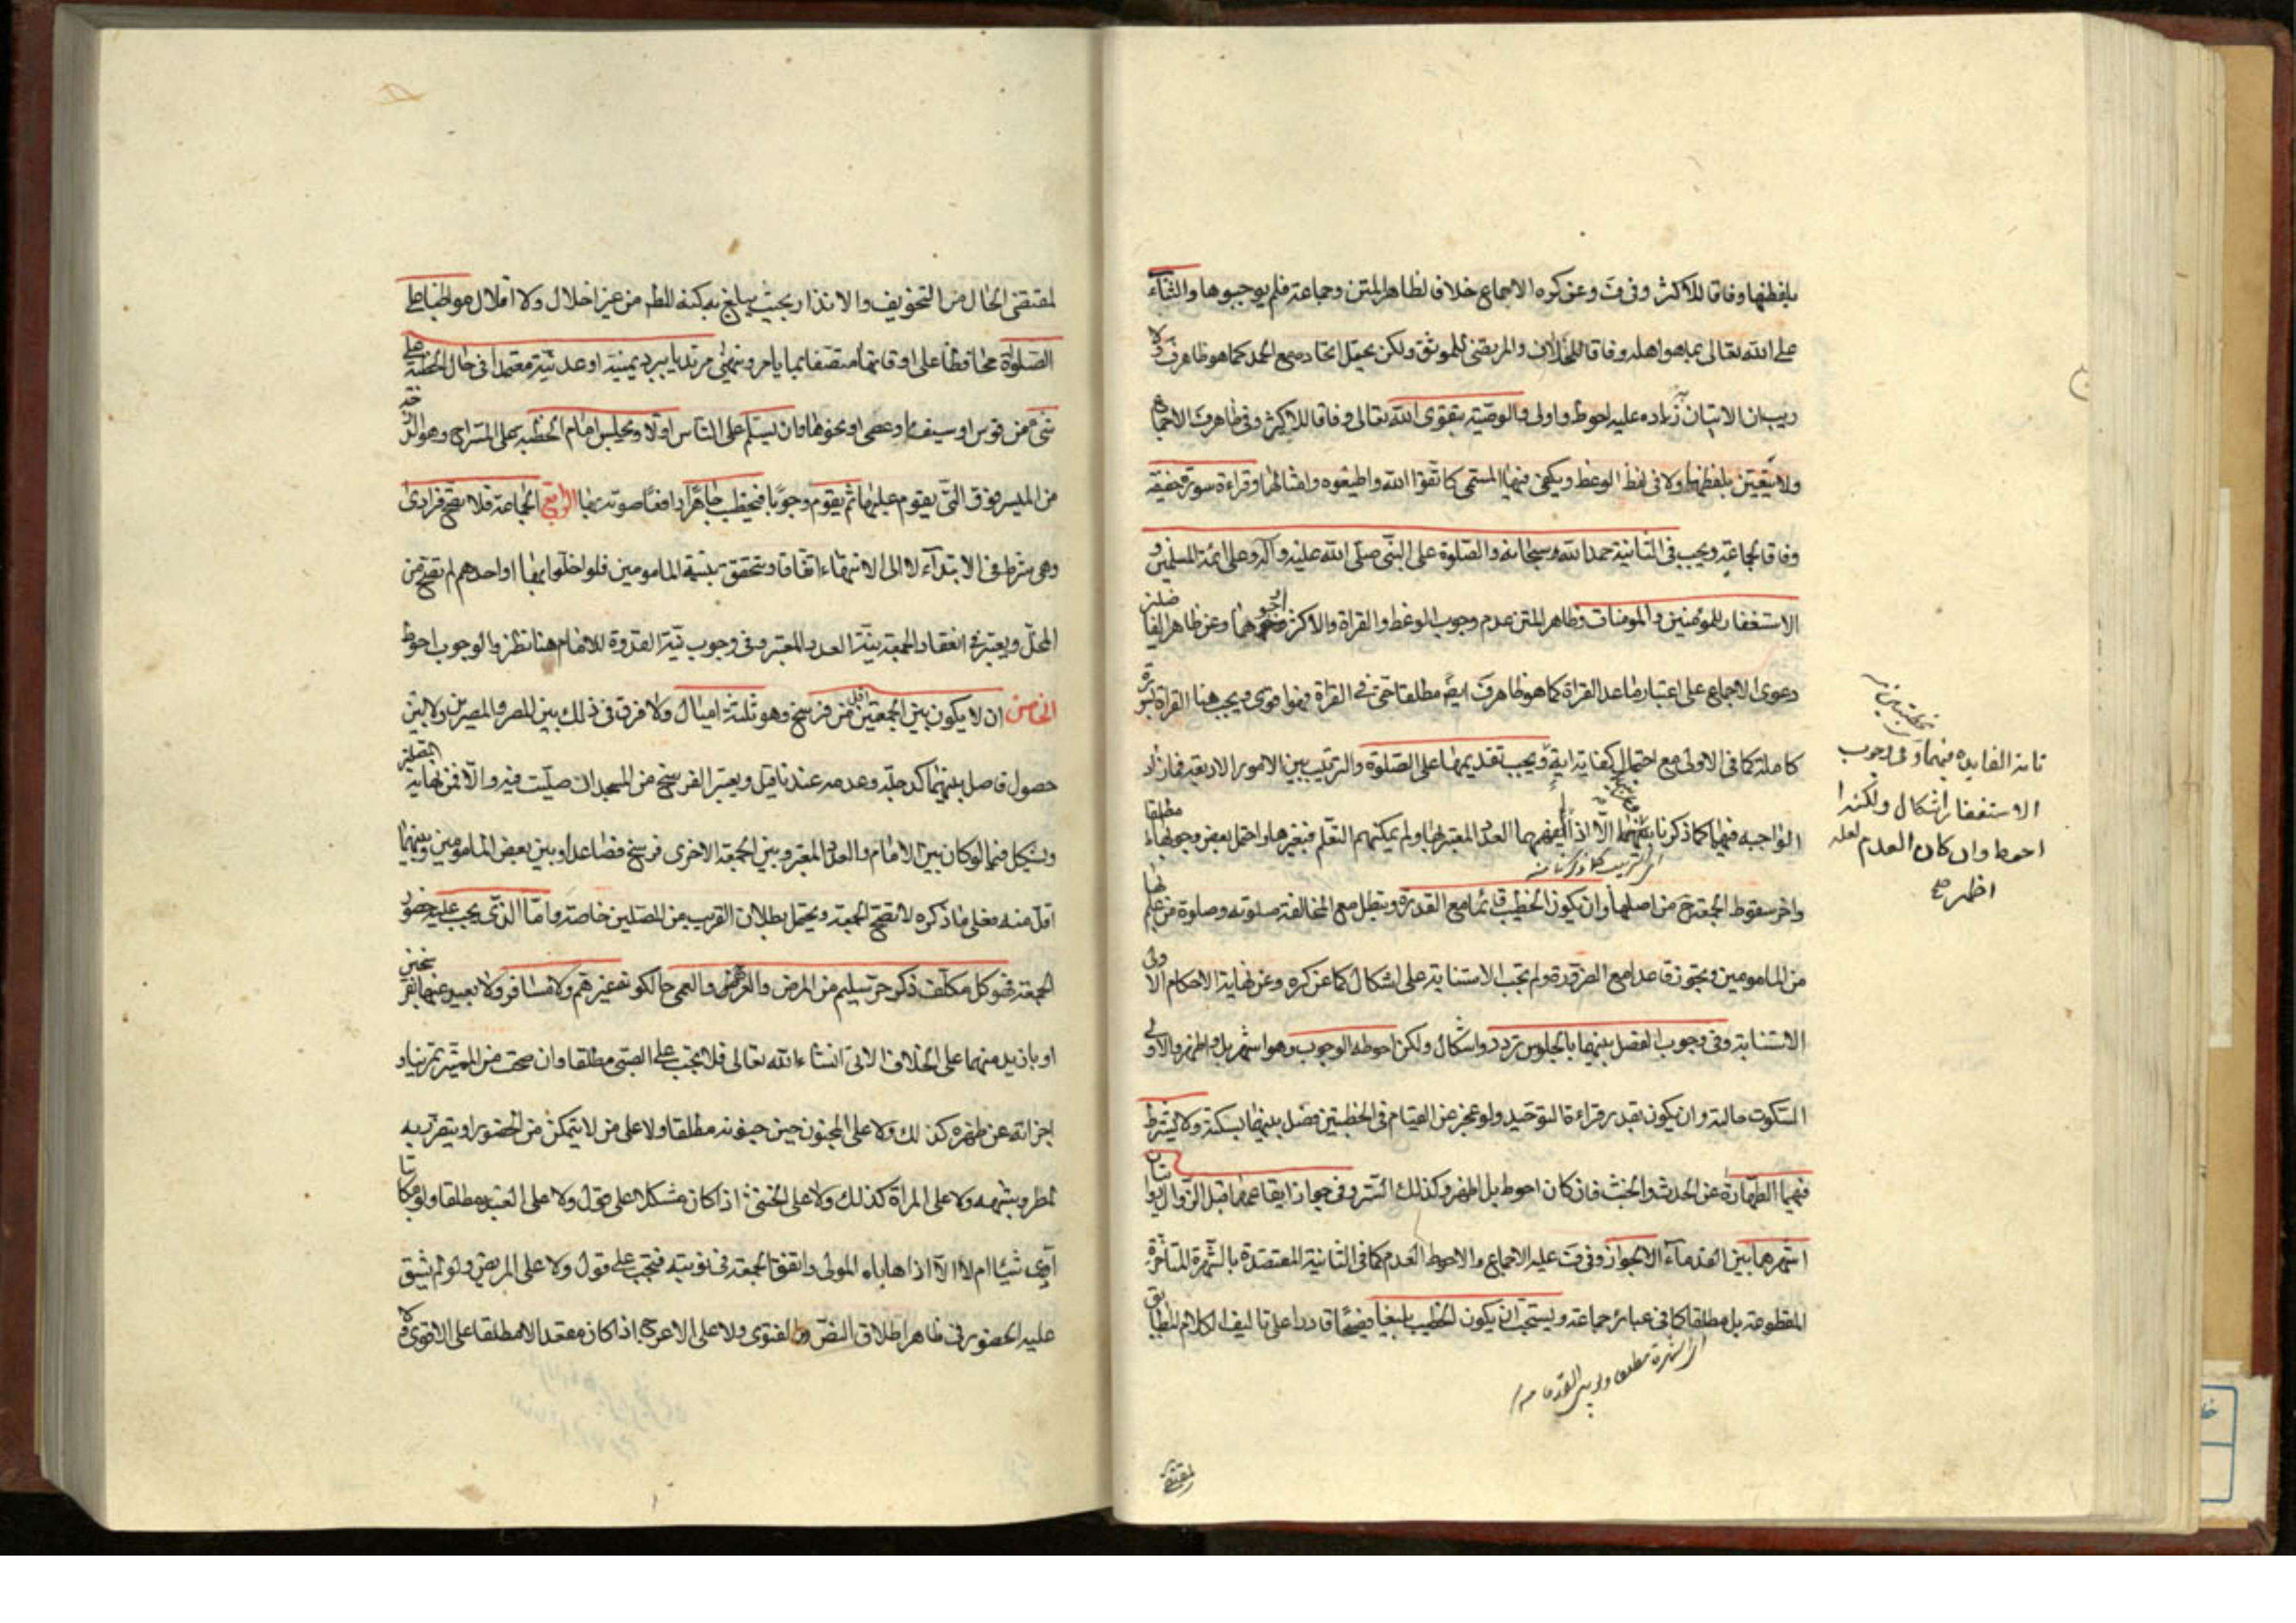 بلفظها وفاقا للاكثر وفي ف وعن كره الاجماع خلافا لظاهر المتن وجماعة فلم يوجبوها والثناء
على الله تعالى بما هو اهله وفاقا للخلاف والمرتضى للموثق ولكن يحتمل اتحاده مع الحمد كما هو ظاهر ف ولا
ريب ان الاتيان بزياده عليه احوط واولى والوصية بتقوى الله تعالى وفاقا للاكثر وفي ظاهر ف الاجماع
ولا يتعين بلفظها ولا في لفظ الوعظ ويكفي فيها المسمى كاتقوا الله واطيعوه وامثالها وقراءة سورة خفيفة
وفاقا لجماعة ويجب في الثانية حمد الله سبحانه والصلوة على النبي صلى الله عليه وآله وعلى ائمة المسلمين و
الاستغفار للمؤمنين والمومنات وظاهر المتن عدم وجوب الوعظ والقراة والاكثر وجوبهما وعن ظاهر الفاضلين
دعوى الاجماع على اعتبار ما عدا القراة كما هو ظاهر ف ايضا مطلقا حتى في القراة فهو اقوى ويجب هنا القراة لسورة
كاملة كما في الاولى مع احتمال كفاية اية ويجب تقديمها على الصلوة والترتيب بين الامور الاربعة فما زاد
الواجبه فيها كما ذكرنا الا اذا لم يفهمها العدد المعتبر لها ولم يمكنهم التعلم فبغيرها واحتمل بعض وجوبها مطلقا
اى الترتيب كما ذكرنا منه
واخر سقوط الجمعة ح من اصلها وان يكون الخطيب قائما مع القدرة وتبطل مع المخالفة صلوته وصلوة من علم بها
من المامومين ويجوز قاعدا مع الضرورة ولم تجب الاستنابة على اشكال كما عن كره وعن نهاية الاحكام الاولى
الاستنابة وفي وجوب الفصل بينهما بالجلوس تردد واشكال ولكن احوطه الوجوب وهو اشهر بل واظهر والاولى
السكوت حالته وان يكون بقدر قراءة التوحيد ولو عجز عن القيام في الخطبتين فصل بينهما بسكتة ولا يشترط
فيهما الطهارة عن الحدث والخبث فان كان احوط بل اظهر وكذلك الستر وفي جواز ايقاعهما قبل الزوال روايتان
اشهرهما بين القدماء الا الجواز وفي ف عليه الاجماع والاحوط العدم كما في الثانية المعتضدة بالشهرة المتاخرة
المقطوعة بل مطلقا كما في عبائر جماعة ويستحب ان يكون الخطيب بليغا فصيحا قادرا على تاليف الكلام المطابق
اى الشهرة مطلقا ولو بين القدما منه
لمقتضى
تامة الفايده فيهما وفي وجوب
الاستغفار اشكال ولكنه
احوط وان كان العدم لعله
اظهر
لمقتضى الحال من التخويف والانذار بحيث يبلغ به كنه المط من غير اخلال ولا املال مواظبا على
الصلوات محافظا على اوقاتها متصفا بما يامر وينهى مرتديا ببرد يمنية او عدنية معتمدا في حال الخطبة على
شئ من قوس او سيف او عصى او نحوها وان يسلم على الناس اولا ويجلس امام الخطبه على المستراح وهو الدرجة
من المنبر فوق التي يقوم عليها ثم يقوم وجوبا فيخطب جاهرا رافعا صوته بها الرابع الجماعة فلا تصح فرادى
وهي شرط في الابتداء لا الى الانتهاء اتفاقا ويتحقق بنية المامومين فلو اخلوا بها او احدهم لم تصح من
المخل ويعتبر في انعقاد الجمعة نية العدد المعتبر وفي وجوب نية القدوة للامام هنا نظر والوجوب احوط
الخامس ان لا يكون بين الجمعتين اقل من فرسخ وهو ثلثة اميال ولا فرق في ذلك بين المصر والمصرين ولا بين
حصول فاصل بينهما كدجلة وعدمه عندنا قيل ويعتبر الفرسخ من المسجد ان صليت فيه والا فمن نهاية المصلين
ويشكل فيما لو كان بين الامام والعدد المعتبر وبين الجمعة الاخرى فرسخ فصاعدا وبين بعض المامومين وبينها
اقل منه فعلى ما ذكره لا تصح الجمعة ويحتمل بطلان القريب من المصلين خاصة واما الذي يجب عليه حضور
الجمعة فهو كل مكلف ذكر حر سليم من المرض والعرج والعمى حالكونه غير هم ولا مسافر ولا بعيد عنها بفرسخين
او بازيد منهما على الخلاف الاتي انشاء الله تعالى فلا تجب على الصبي مطلقا وان صحت من المميز تمرينا و
اجزاته عن ظهره كذلك ولا على المجنون حين جنونه مطلقا ولا على من لا يتمكن من الحضور او يتضرر به
لمطر وشبهه ولا على المراة كذلك ولا على الخنثى اذا كان مشكلا على قول ولا على العبد مطلقا ولو مكاتبا
ادى شيئا ام لا الا اذا هاياه المولى واتفق الجمعة في نوبته فتجب على قول ولا على المريض ولو لم يشق
عليه الحضور في ظاهر اطلاق النص والفتوى ولا على الاعرج اذا كان مقعدا لا مطلقا على الاقوى ولا